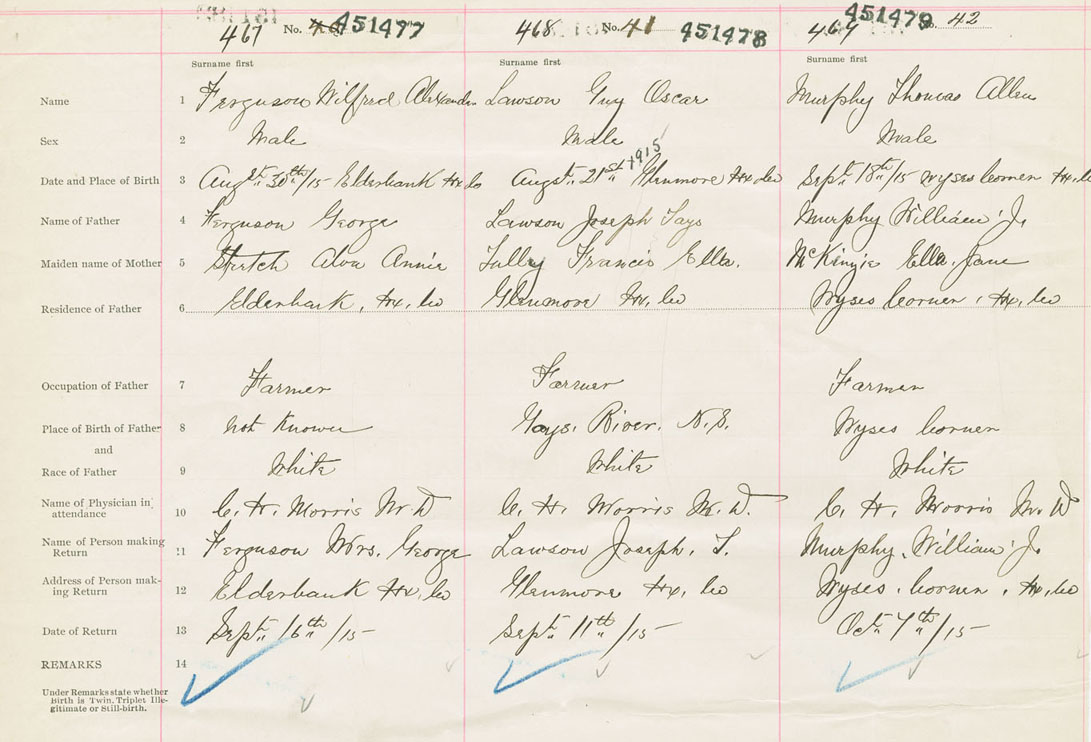 467 No. 451477 468 No. 41 451478 469 451479 No. 42
Surname first Surname first Surname first
Name 1 Ferguson Wilfred Alexander Lawson Guy Oscar Murphy Thomas Allen
Sex 2 Male Male Male
Date and Place of Birth 3 Augst 30th/15 Elderbank Hx Co Augst 21st 1915 Glenmore Hx Co Sept 18th/15 Wyses Corner Hx Co
Name of Father 4 Ferguson George Lawson Joseph Murphy William J.
Maiden name of Mother 5 Stretch Alva Annie Tulley Francis Ella. McKinzie Ella Jane
Residence of Father 6 Elderbank, Hx, Co Glenmore Hx, Co Wyses Corner, Hx, Co
Occupation of Father 7 Farmer Farmer Farmer
Place of Birth of Father 8 Not Known Gays. River. N.S. Wyses Corner
and
Race of Father 9 White White White
Name of Physician in 10 C. H. Morris M D C. H. Morris M. D. C. H. Morris M. D
attendance
Name of Person making 11 Ferguson Mrs. George Lawson Joseph. T. Murphy, William J.
Return
Address of Person mak- 12 Elderbank Hx, Co Glenmore Hx, Co Wyses. Corner, Hx, Co
ing Return
Date of Return 13 Sept 16th/15 Sept 11th/15 Oct 7th/15
REMARKS 14
Under Remarks state whether
Birth is Twin, Triplet Ille-
gitimate or Still-birth.